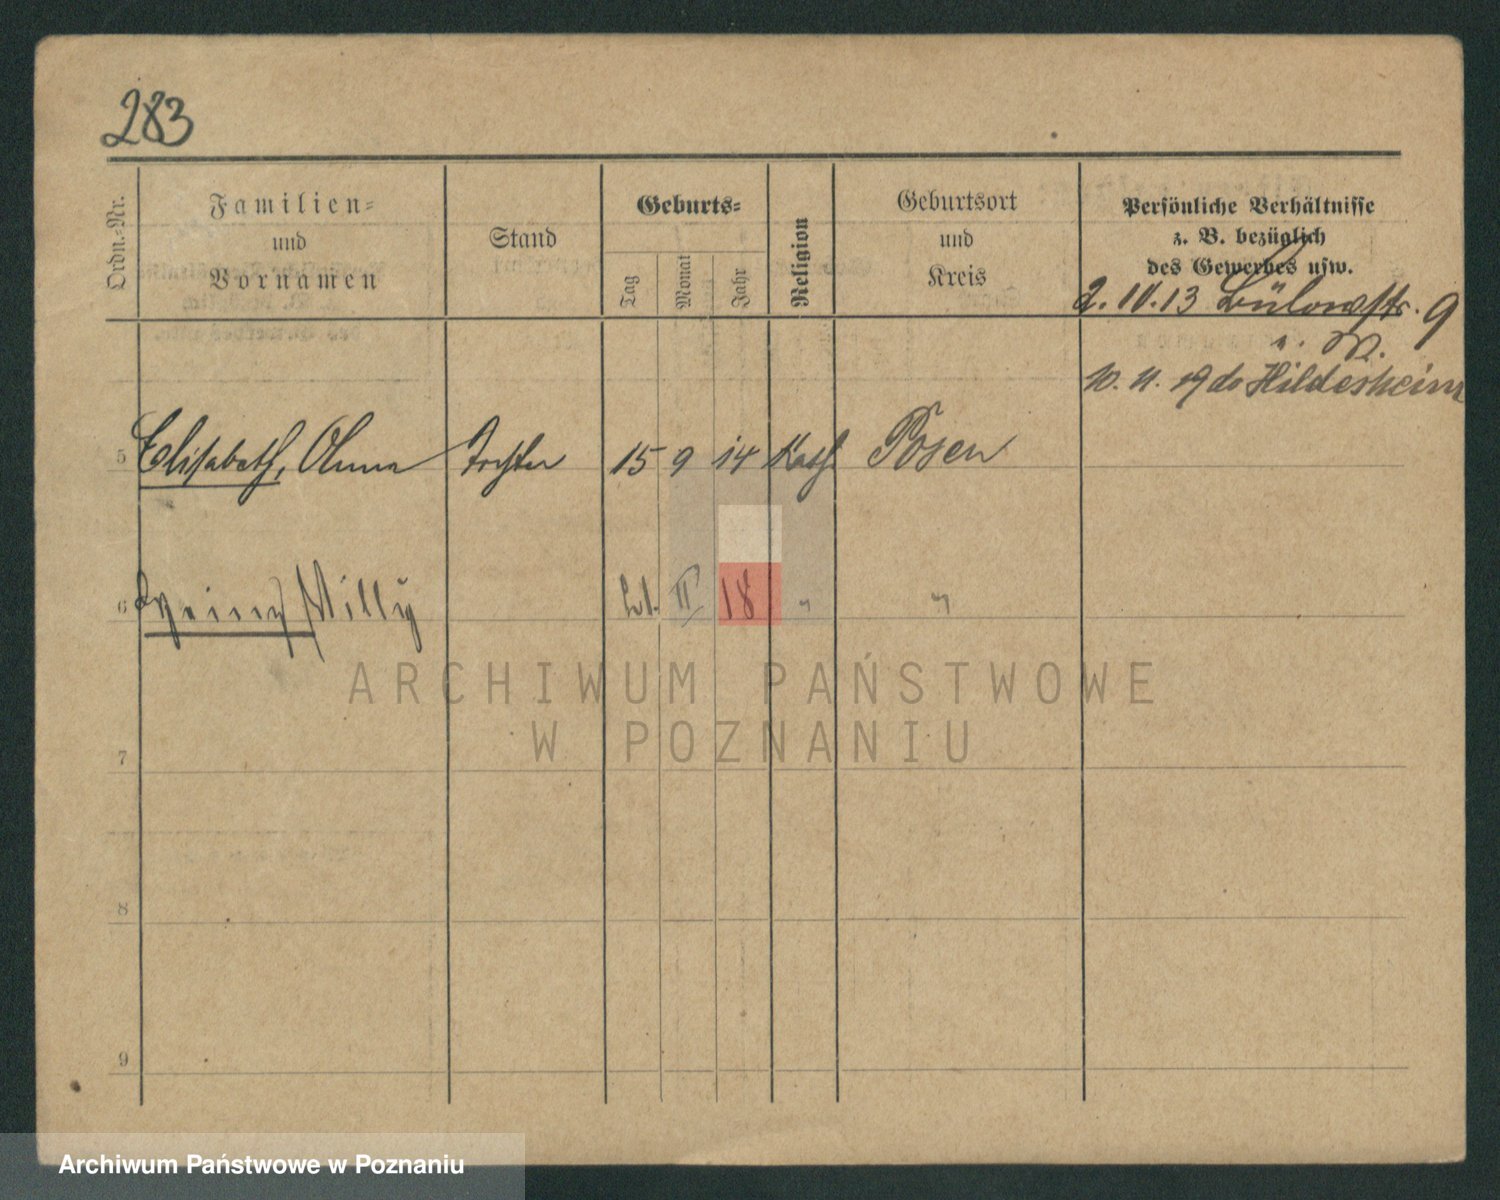 283
Ordn.-Nr.
Familien-
und
Vornamen
Stand
Geburts-
Tag
Monat
Jahr
Religion
Geburtsort
und
Kreis
Persönliche Verhältnisse
z. B. bezüglich
des Gewerbes usw.
2. 10. 13 Bülowstr. 9
10. 11. 19 do Hildesheim
5 Elisabeth, Anna Tochter 15 9 14 Kath Posen
6 Heinz Willy II 18 " "
ARCHIWUM PAŃSTWOWE
W POZNANIU
7
8
9
Archiwum Państwowe w Poznaniu